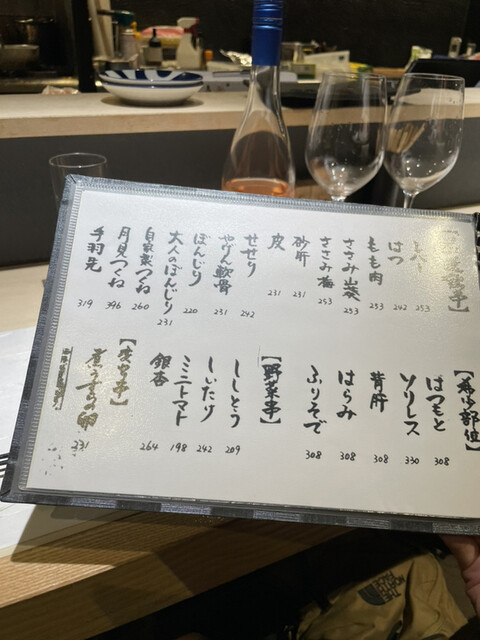 レバー
253
はつ
242
もも肉
253
ささみ山葵
253
ささみ梅
253
砂肝
231
皮
231
せせり
242
やげん軟骨
231
ぼんじり
220
大人のぼんじり
231
自家製つくね
260
月見つくね
396
手羽先
319
【希少部位】
はつもと
308
ソリレス
330
背肝
308
はらみ
308
ふりそで
308
【野菜串】
ししとう
209
しいたけ
242
ミニトマト
198
銀杏
264
うずらの卵
231
THE NORTH FACE